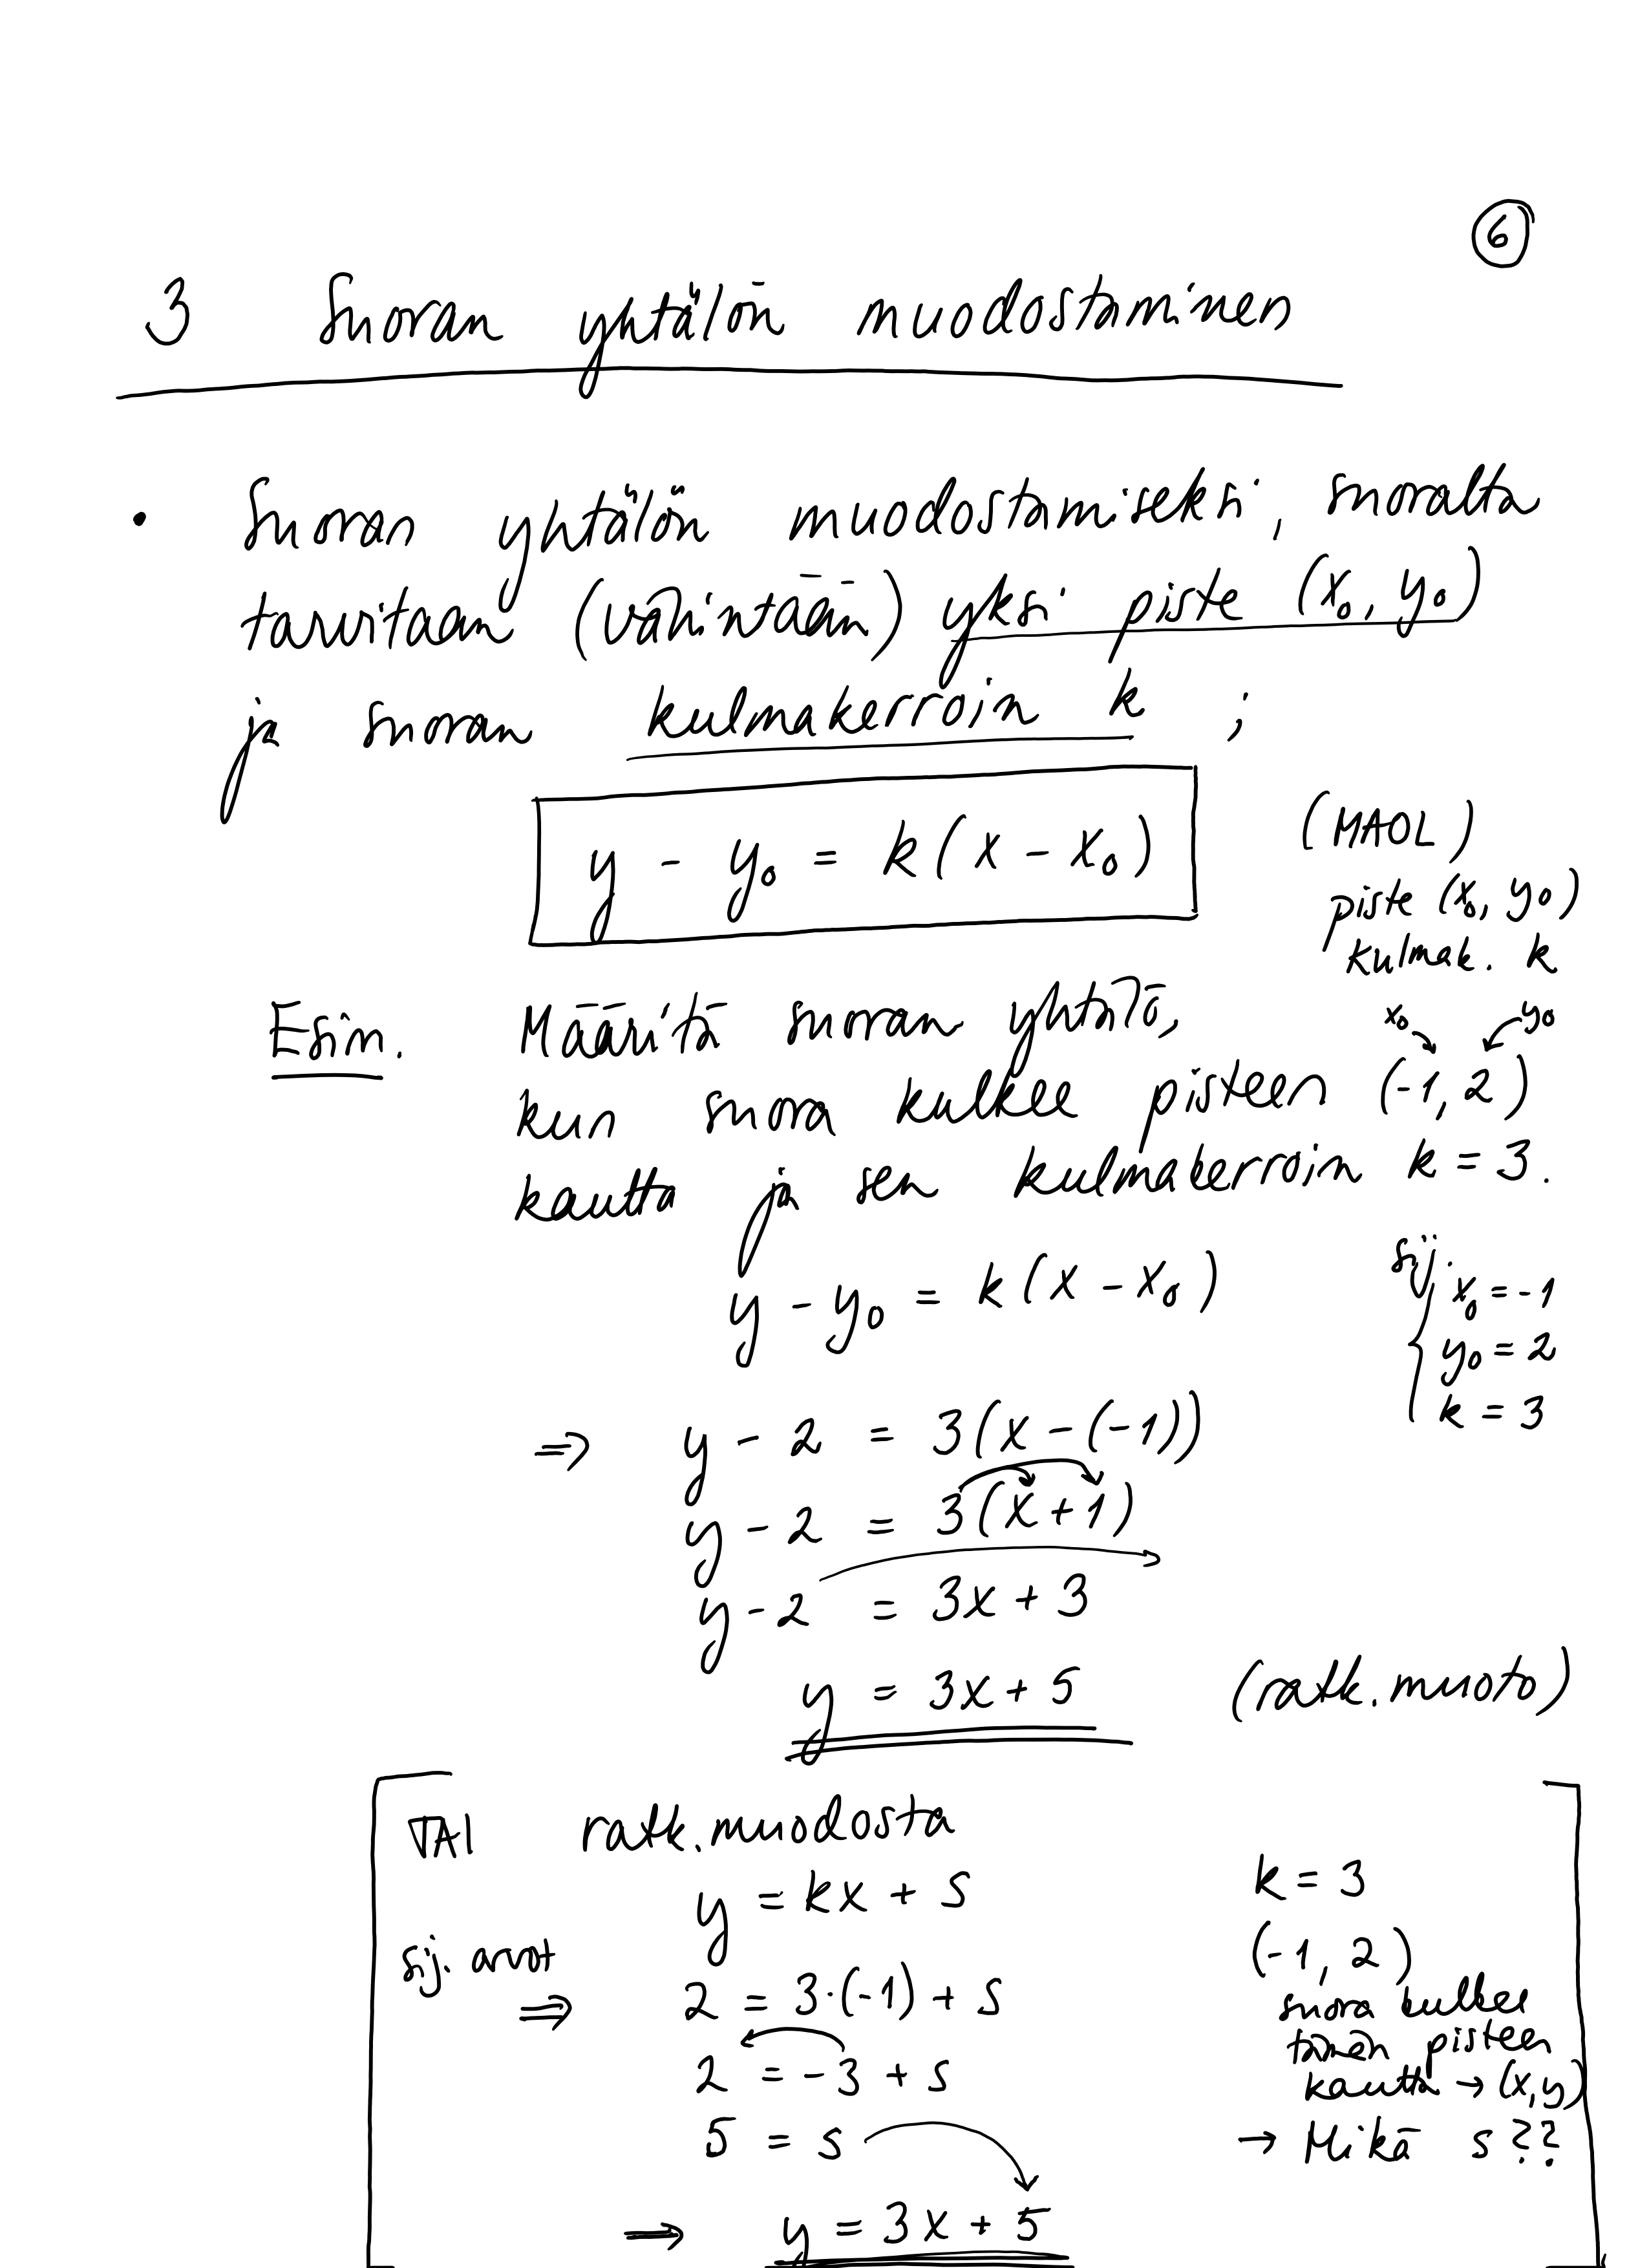 6
3 Suoran yhtälön muodostaminen
• Suoran yhtälön muodostamiseksi, suoralta
tarvitaan (vähintään) yksi piste (x₀, y₀)
ja suoran kulmakerroin k ;
y - y₀ = k(x - x₀)
(MAOL)
piste (x₀, y₀)
kulmak. k
Esim. Määritä suoran yhtälö,
x₀ y₀
kun suora kulkee pisteen (-1, 2)
kautta ja sen kulmakerroin k = 3.
y - y₀ = k(x - x₀)
sij.
x₀ = -1
y₀ = 2
k = 3
⇒ y - 2 = 3(x - (-1))
y - 2 = 3(x + 1)
y - 2 = 3x + 3
y = 3x + 5 (ratk.muoto)
TAI ratk.muodosta
y = kx + s
k = 3
sij. arvot
(-1, 2)
⇒ 2 = 3·(-1) + s
suora kulkee
tämän pisteen
2 = -3 + s
kautta → (x,y)
5 = s
→ Mikä s??
⇒ y = 3x + 5